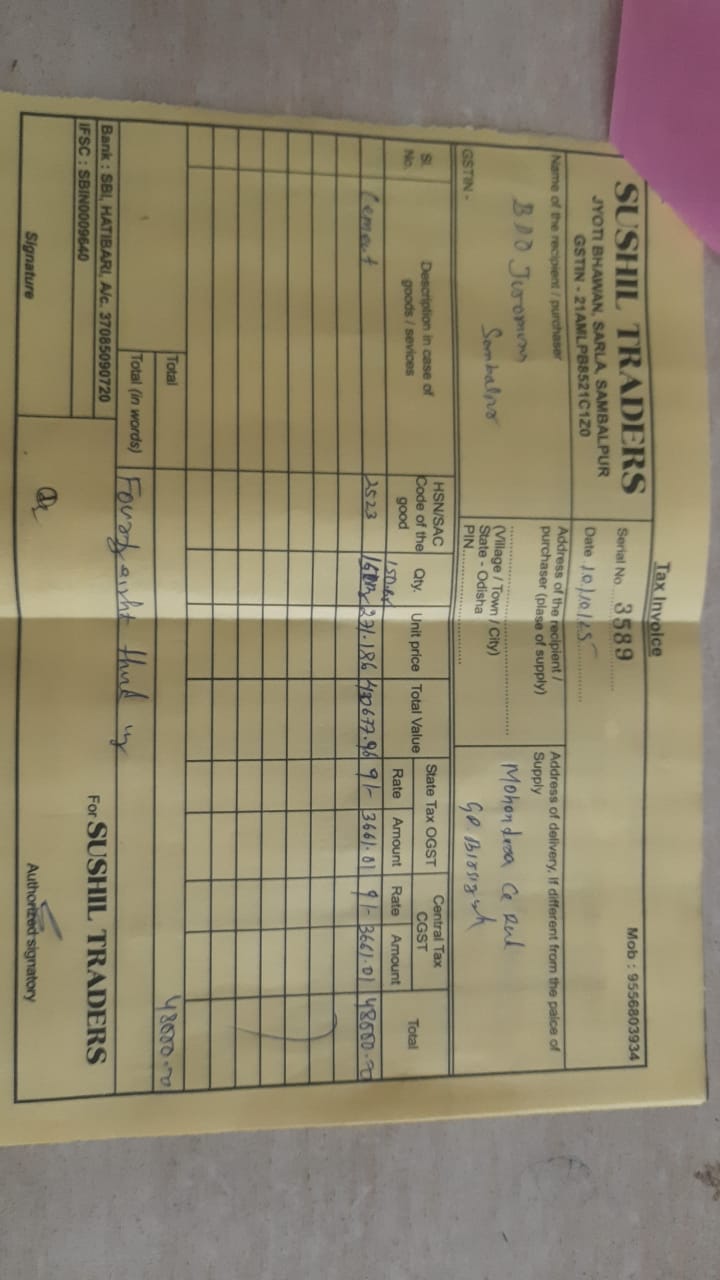 Tax Invoice
SUSHIL TRADERS
JYOTI BHAWAN, SARLA, SAMBALPUR
GSTIN - 21AMLPB8521C1Z0
Serial No. 3589
Mob : 9556803934
Date 10/10/25
Name of the recipient / purchaser
BDO Juromura
Sambalpur
GSTIN -
Address of the recipient / purchaser (plase of supply)
(Village / Town / City)
State - Odisha
PIN
Address of delivery, If different from the palce of Supply
Mohondra
GP.
Sl. No.
Description in case of goods / sevices
HSN/SAC Code of the good
Qty.
Unit price
Total Value
State Tax OGST
Rate Amount
Central Tax CGST
Rate Amount
Total
Cement 2523 150 271.186 40677.96 9/- 3661.01 9/- 3661.01 48000.00
Total 48000.00
Total (in words) Fourty eight thud
Bank : SBI, HATIBARI, A/c. 37085090720
IFSC : SBIN0009640
For SUSHIL TRADERS
Signature
Authorized signatory